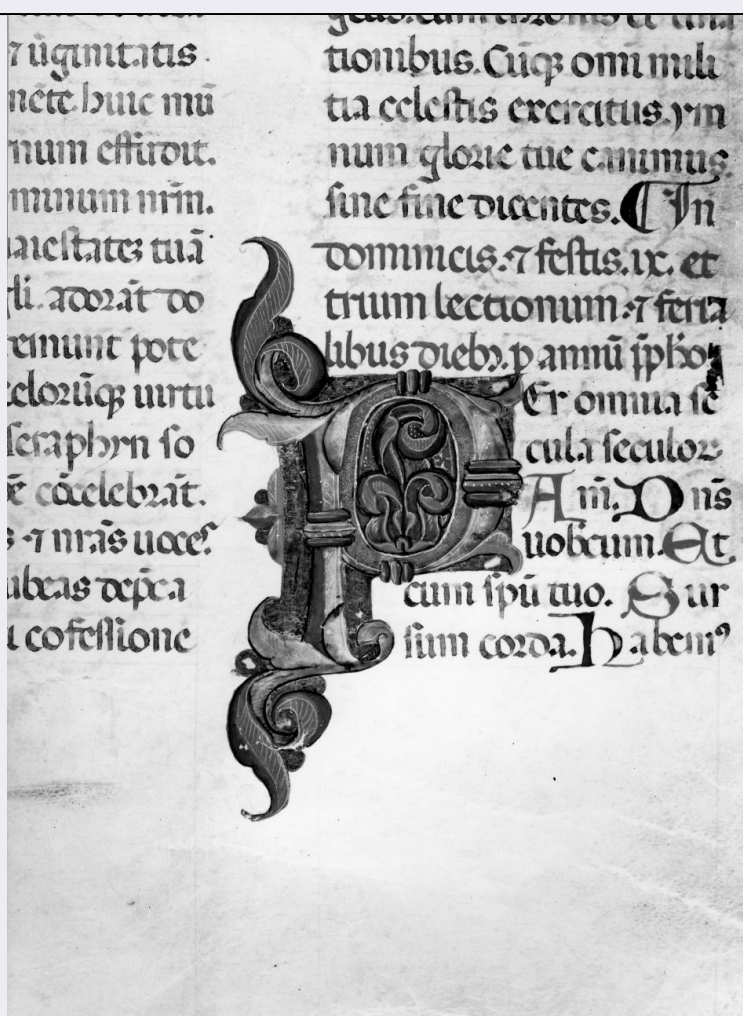 ⁊ ũginitatis.
nete huic mũ
num effudit.
minum nrm̃.
maiestatez tuã
gli. adorãt do
remunt pote
celorũqꝫ uirtu
seraphyn so
ẽ cõcelebrãt.
s ⁊ nrãs uoces
ubeas dep̃ca
i cofessione
tionibus. Cũqꝫ omni mili
tia celestis exercitus. ym
num glorie tue canimus.
sine fine dicentes. ¶ In
dominicis. ⁊ festis. ix. et
trium lectionum. ⁊ feria
libus diebꝫ. p annũ
PEr omnia se
cula seculoꝝ
Am̃. Dñs
uobcum. Et
cum spũ tuo. Sur
sum corda. Habemꝰ